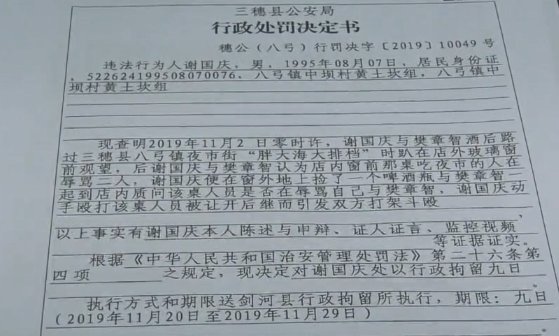 三穗县公安局
行政处罚决定书
穗公（八弓）行罚决字〔2019〕10049 号
违法行为人谢国庆，男，1995年08月07日，居民身份证，
522624199508070076，八弓镇中坝村黄土坎组，八弓镇中
坝村黄土坎组
现查明2019年11月2 日零时许，谢国庆与樊章智酒后路
过三穗县八弓镇夜市街“胖大海大排档”时趴在店外玻璃窗
前观望，后谢国庆与樊章智认为店内窗前那桌吃夜市的人在
辱骂三人，谢国庆便在窗外地上捡了一个啤酒瓶与樊章智一
起到店内质问该桌人员是否在辱骂自己与樊章智，谢国庆动
手殴打该桌人员被让开后继而引发双方打架斗殴
以上事实有谢国庆本人陈述与申辩、证人证言、监控视频
等证据证实。
根据《中华人民共和国治安管理处罚法》第二十六条第
四项 之规定，现决定对谢国庆处以行政拘留九日
执行方式和期限送剑河县行政拘留所执行，期限：九日
（2019年11月20日至2019年11月29日）